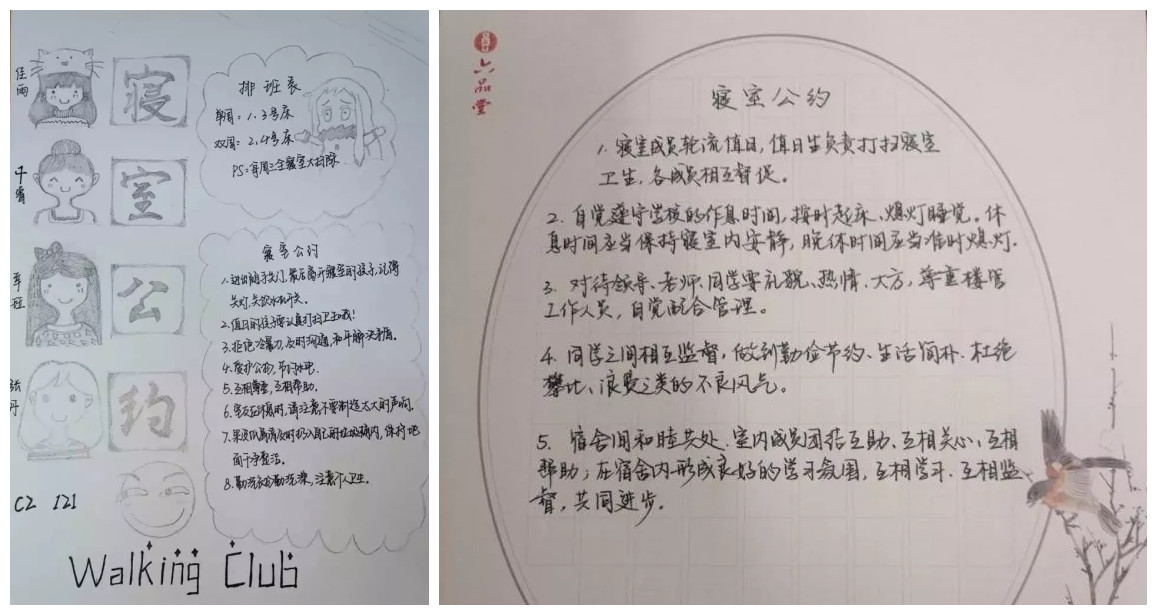 佳雨
寝
室
公
约
排班表
单周：1.3号床
双周：2.4号床
PS：每周三全寝室大扫除
寝室公约
1.进出随手关门，最后离开寝室的孩子，记得
关灯，关饮水机开关。
2.值日的孩子要认真打扫卫生哦！
3.拒绝冷暴力，及时沟通，和平解决矛盾。
4.爱护公物，节约水电。
5.互相尊重，互相帮助。
6.室友在休息时，请注意不要制造太大的声响。
7.果皮瓜屑请及时扔入自己的垃圾桶内，保持地
面干净整洁。
8.勤洗衣勤洗澡，注意个人卫生。
C2 121
Walking Club
六品堂
寝室公约
1.寝室成员轮流值日，值日生负责打扫寝室
卫生，各成员相互督促。
2.自觉遵守学校的作息时间，按时起床、熄灯睡觉。休
息时间应当保持寝室内安静，晚休时间应当准时熄灯.
3.对待领导、老师、同学要礼貌、热情、大方，尊重楼管
工作人员，自觉配合管理。
4.同学之间相互监督，做到勤俭节约、生活简朴、杜绝
攀比、浪费之类的不良风气。
5.宿舍间和睦共处、室内成员团结互助、互相关心、互相
帮助；在宿舍内形成良好的学习氛围，互相学习、互相监
督，共同进步。